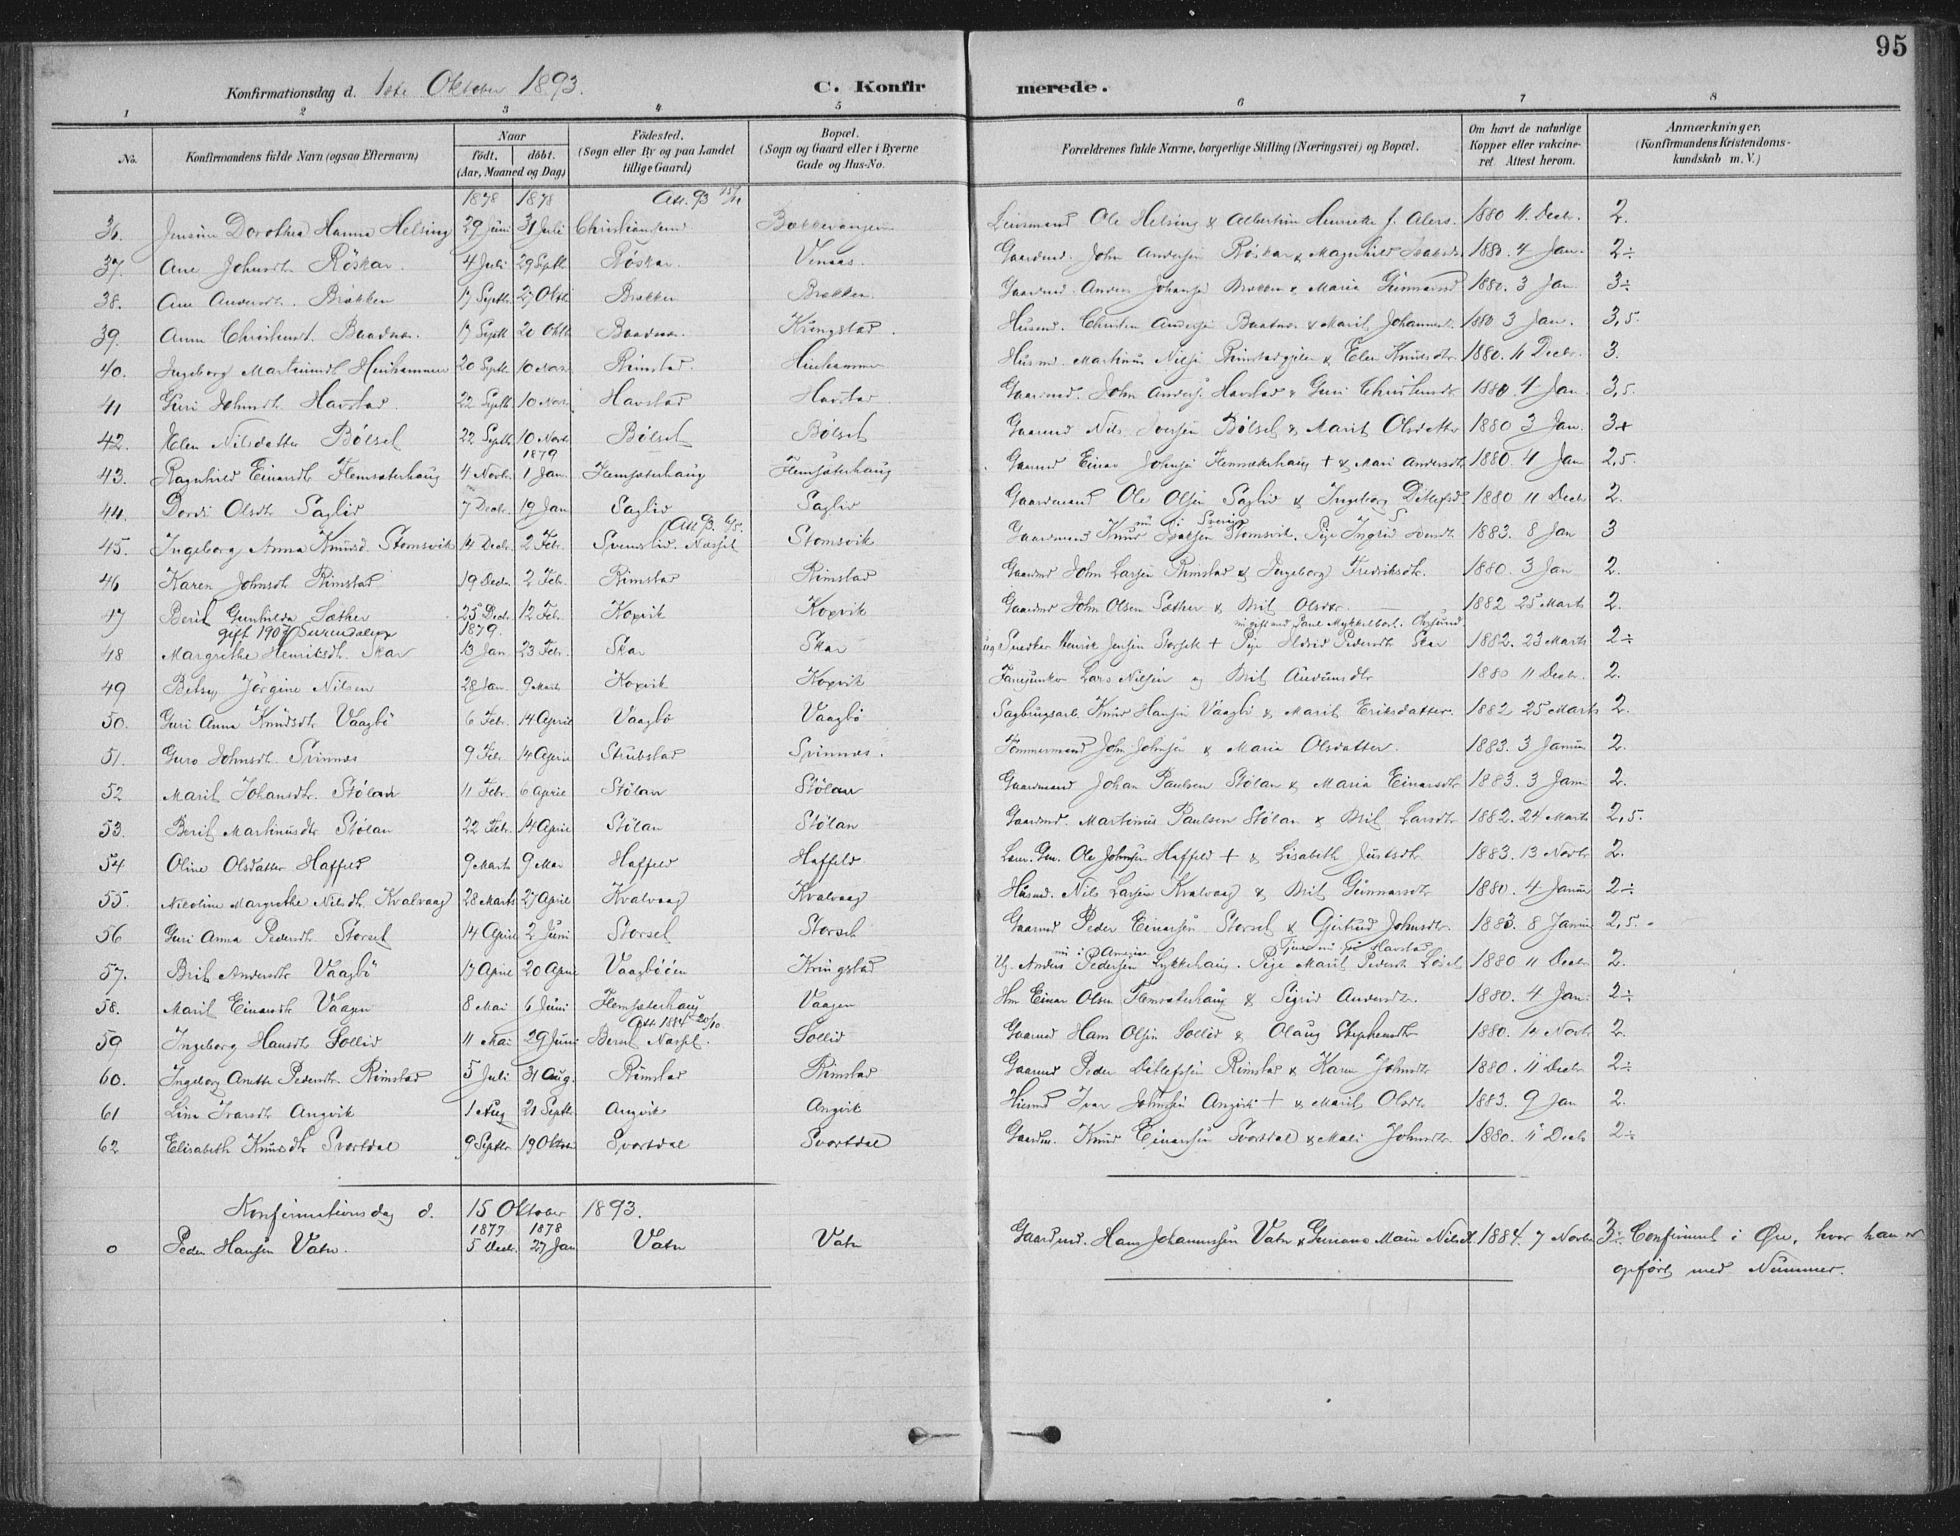 95
Konfirmationsdag d. 1ste Oktober 1893. C. Konfirmerede.
1 2 3 4 5 6 7 8
No. Konfirmandens fulde Navn (ogsaa Efternavn) Naar födt. döbt. (Aar, Maaned og Dag) Födested. (Sogn eller By og paa Landet tillige Gaard) Bopæl. (Sogn og Gaard eller i Byerne Gade og Hus-No. Forældrenes fulde Navne, borgerlige Stilling (Næringsvei) og Bopæl. Om havt de naturlige Kopper eller vakcineret. Attest herom. Anmærkninger. (Konfirmandens Kristendomskundskab m. V.)
1878 1878 Att. 93
36. Dorothea Hanna Helsing 29 Juni 31 Juli Christiansund Lensmand Ole Helsing & Henriette f. 1880 11 Decbr. 2.
37. Ane Johnsdtr Röskar. 4 Juli 29 Septb Röskar. Venaas Gaardmd. John Andersen Röskar & 1880. 4 Jan. 2÷
38. Ane Andersdtr. Brækken 17 Septb. 27 Oktb Brækken Brækken Gaardmd. Anders Johansen Brækken & Maria Gunnarsd 1880. 3 Jan 3÷
39. Anne Baadnes. 17 Septb 20 Oktb Baadnes. Kringstad. Husmd. Andersen Baadnes & Marit Johannesd. 1880 3 Jan. 3,5.
40. Ingeborg Heinhammer 20 Septb 10 Nov Rimstad. Heinhammer Husmd. Martinus Nilsen & Elen Knudsdtr. 1880. 11 Decbr. 3.
41 Guri Johnsdtr. Havstad. 22 Septb. 10 Nov. Havstad Havstad Gaardmd. John Anders. Havstad & Guri 1880 4 Jan. 3,5.
42. Elen Nilsdatter Bölset 22 Septb 10 Novb Bölset Bölset Gaarmd Nils Iversen Bölset & Marit Olsdatter 1880 3 Jan. 3+
1879
43. Ragnhild Einarsdtr Flemsæterhaug 4 Novbr. 1 Jan. Flemsæterhaug Flemsæterhaug Gaarmd Einar Johnsen Flemsæterhaug + & Mari Andersdtr 1880. 4 Jan 2,5.
44. Dordi Olsdtr Saglid 7 Decbr. 19 Jan Saglid Saglid Gaardmand Ole Olsen Saglid & Ingeborg Ditlefsd. 1880 11 Decbr 2.
Att 93.
45. Ingeborg Anna Knudsd. Stomsvik 14 Decbr. 2 Febr. Næsset Stomsvik Gaardmand Knud Stomsvik. Pige Ingrid 1883. 8 Jan 3
46 Karen Johnsdtr Rimstad 19 Decbr. 2 Febr. Rimstad Rimstad Gaardmd John Larsen Rimstad & Ingeborg Fredriksdtr. 1880. 3 Jan 2.
47 Berit Gunhilda Sæther 25 Decb. 12 Febr. Koxvik Koxvik Gaardmd John Olsen Sæther & Brit Olsdtr. 1882 25 Marts 2.
gift 1907 Surendalen 1879.
48 Margrethe Henriksdtr. Skar 13 Jan 23 Febr. Skar Skar Snedker Henrik Jensen + Pige Pedersdtr Skar 1882. 23 Marts 2÷
49 Betsy Jörgine Nilsen 28 Jan. 9 Marts Koxvik Koxvik Lars Nilsen og Brit 1880 11 Decbr. 2.
50. Guri Anna Knudsdtr Vaagbö 6 Febr. 14 April Vaagbö Vaagbö Sagbrugsarb. Knud Hansen Vaagbö & Marit Eriksdatter. 1882 25 Marts 2.
51. Guro Johnsdtr. Svinnæs 9 Febr. 14 April Strubstad Svinnæs. Tömmermand John Johnsen & Maria Olsdatter. 1883. 3 Januar 2.
52 Marit Johansdtr. Stölan 11 Febr. 6 April Stölan Stölan Gaardmand Johan Paulsen Stölan & Maria Einarsdtr 1883. 3 Janu 2.
53. Berit Martinusdtr Stölan 22 Febr. 14 April Stölan Stölan Gaardmd. Martinus Paulsen Stölan & Brit Larsdtr 1882. 24 Marts 2,5.
54 Oline Olsdatter Haffeld 9 Marts 9 Mai Haffeld Haffeld Ole Johnsen Haffeld + & Lisabeth Justsdtr 1883. 13 Novbr 2.
55. Nicoline Margrethe Nilsdtr. Kvalvaag 28 Marts 27 April Kvalvaag Kvalvaag Husmd. Nils Larsen Kvalvaag & Brit Gunnarsdtr 1880. 4 Januar 2÷
56 Guri Anna Pedersdtr Storset 14 April 2 Juni Storset Storset Gaarmd Peder Einarsen Storset & Gjertrud Johnsdtr. 1883. 8 Januar 2,5.
57. Brit Andersdtr Vaagbö 17 April 20 April Vaagböen Kringstad Anders Pedersen Lykkehaug. Pige Marit Pedersdt 1880 11 Decbr 2.
58. Marit Einarsdtr Vaagen 8 Mai 6 Juni Flemsæterhaug Vaagen Hm Einar Olsen Flemsæterhaug & Sigrid Andersdtr. 1880. 4 Jan. 2÷
Att 1884 20/10
59 Ingeborg Hansdtr Sollid 11 Mai 29 Juni Næsset. Sollid Gaarmd Hans Olsen Sollid & Olaug Stephensdtr 1880. 14 Novbr 2.
60. Ingeborg Anette Pedersdtr. Rimstad 5 Juli 31 Aug. Rimstad Rimstad Gaarmd Peder Ditlefsen Rimstad & Karen Johnsdtr 1880. 11 Decbr 2÷
61 Lina Ivarsdtr Angvik 1 Aug 21 Septb Angvik Angvik Ivar Johnsen Angvik + & Marit Olsdtr 1883. 9 Jan 2.
62 Elisabeth Knudsdtr Svortdal 9 Septbr 19 Oktbr Svortdal Svortdal Gaardm. Knud Einarsen Svortdal & Mali Johnsdtr. 1880. 11 Decbr 2÷
Konfirmationsdag d. 15 Oktober 1893.
1877 1878
0 Peder Hansen Vatn. 5 Decbr. 27 Jan Vatn Vatn Gaardmd. Hans Johannessen Vatn & 1884. 7 Novbr 3÷ Confirmeret i Øre, hvor han er
opført med Nummer.